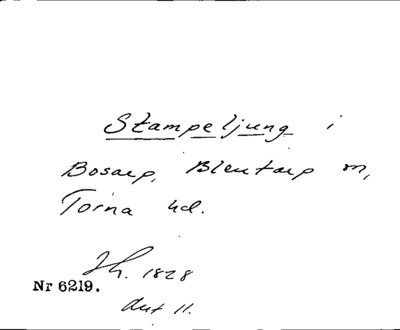 Stampeljung i
Bosarp, Blentarp sn,
Torna hd.
Jh. 1828
Nr 6219.
Aut 11.